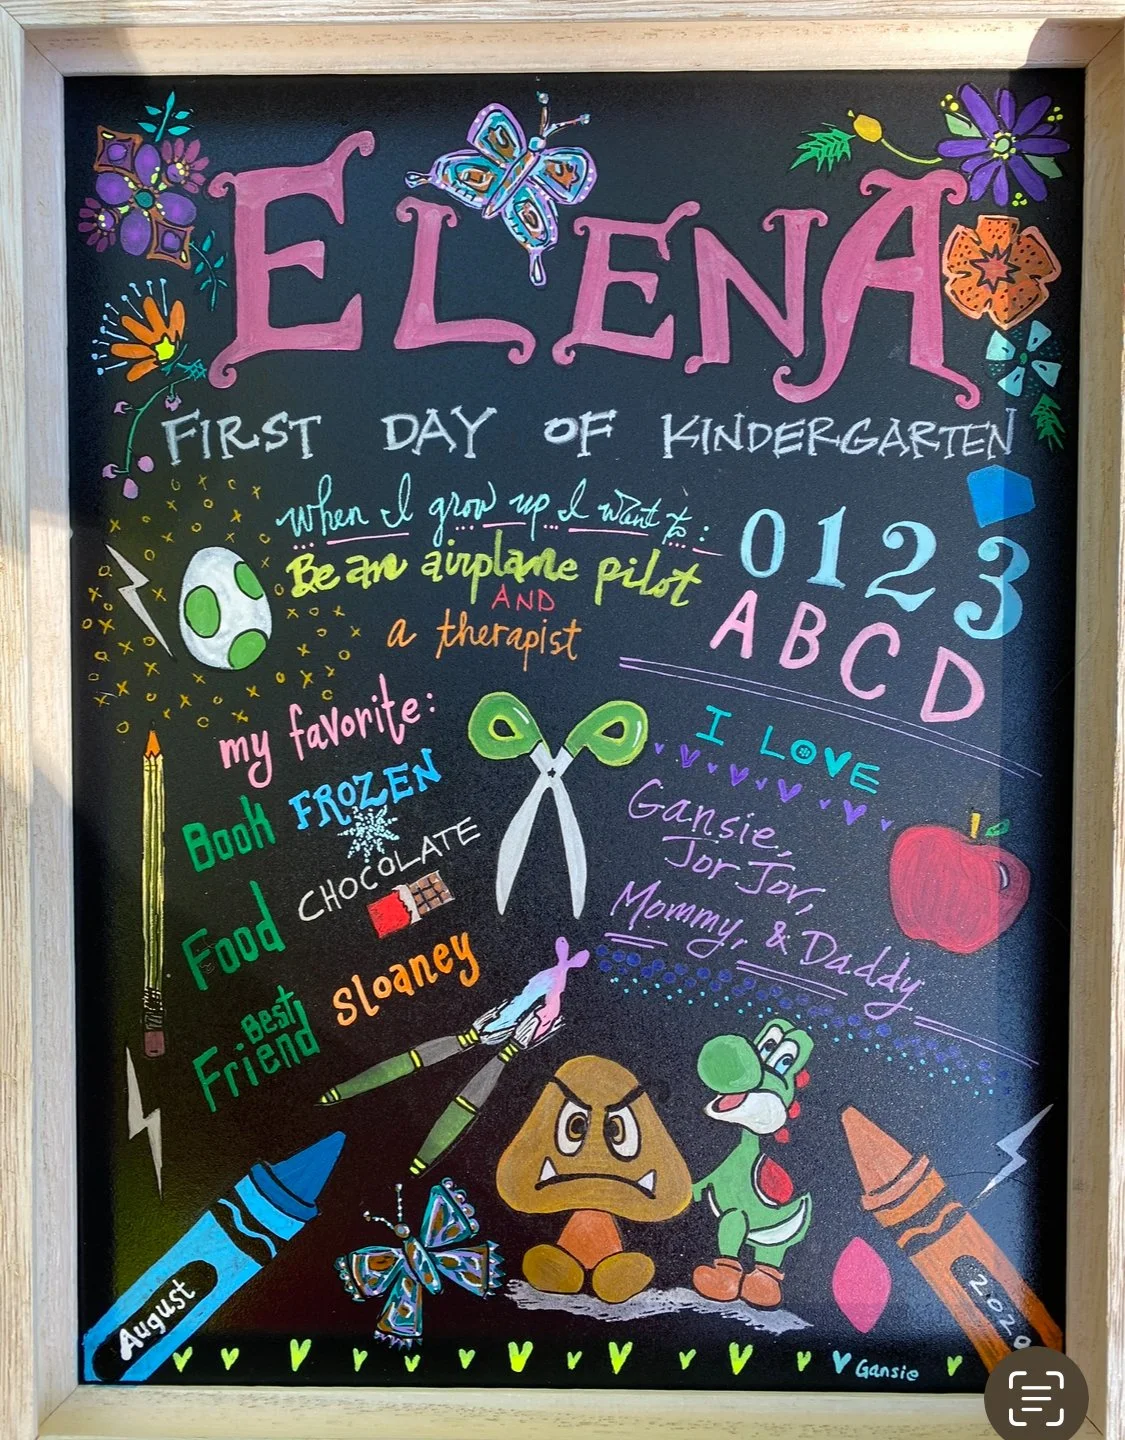 ELENA
FIRST DAY OF KINDERGARTEN
When I grow up I want to:
Be an airplane pilot
AND
a therapist
0 1 2 3
A B C D
my favorite:
Book FROZEN
Food CHOCOLATE
Best Friend Sloaney
I LOVE
Gansie,
Jor Jor,
Mommy, & Daddy
August
2020
Gansie